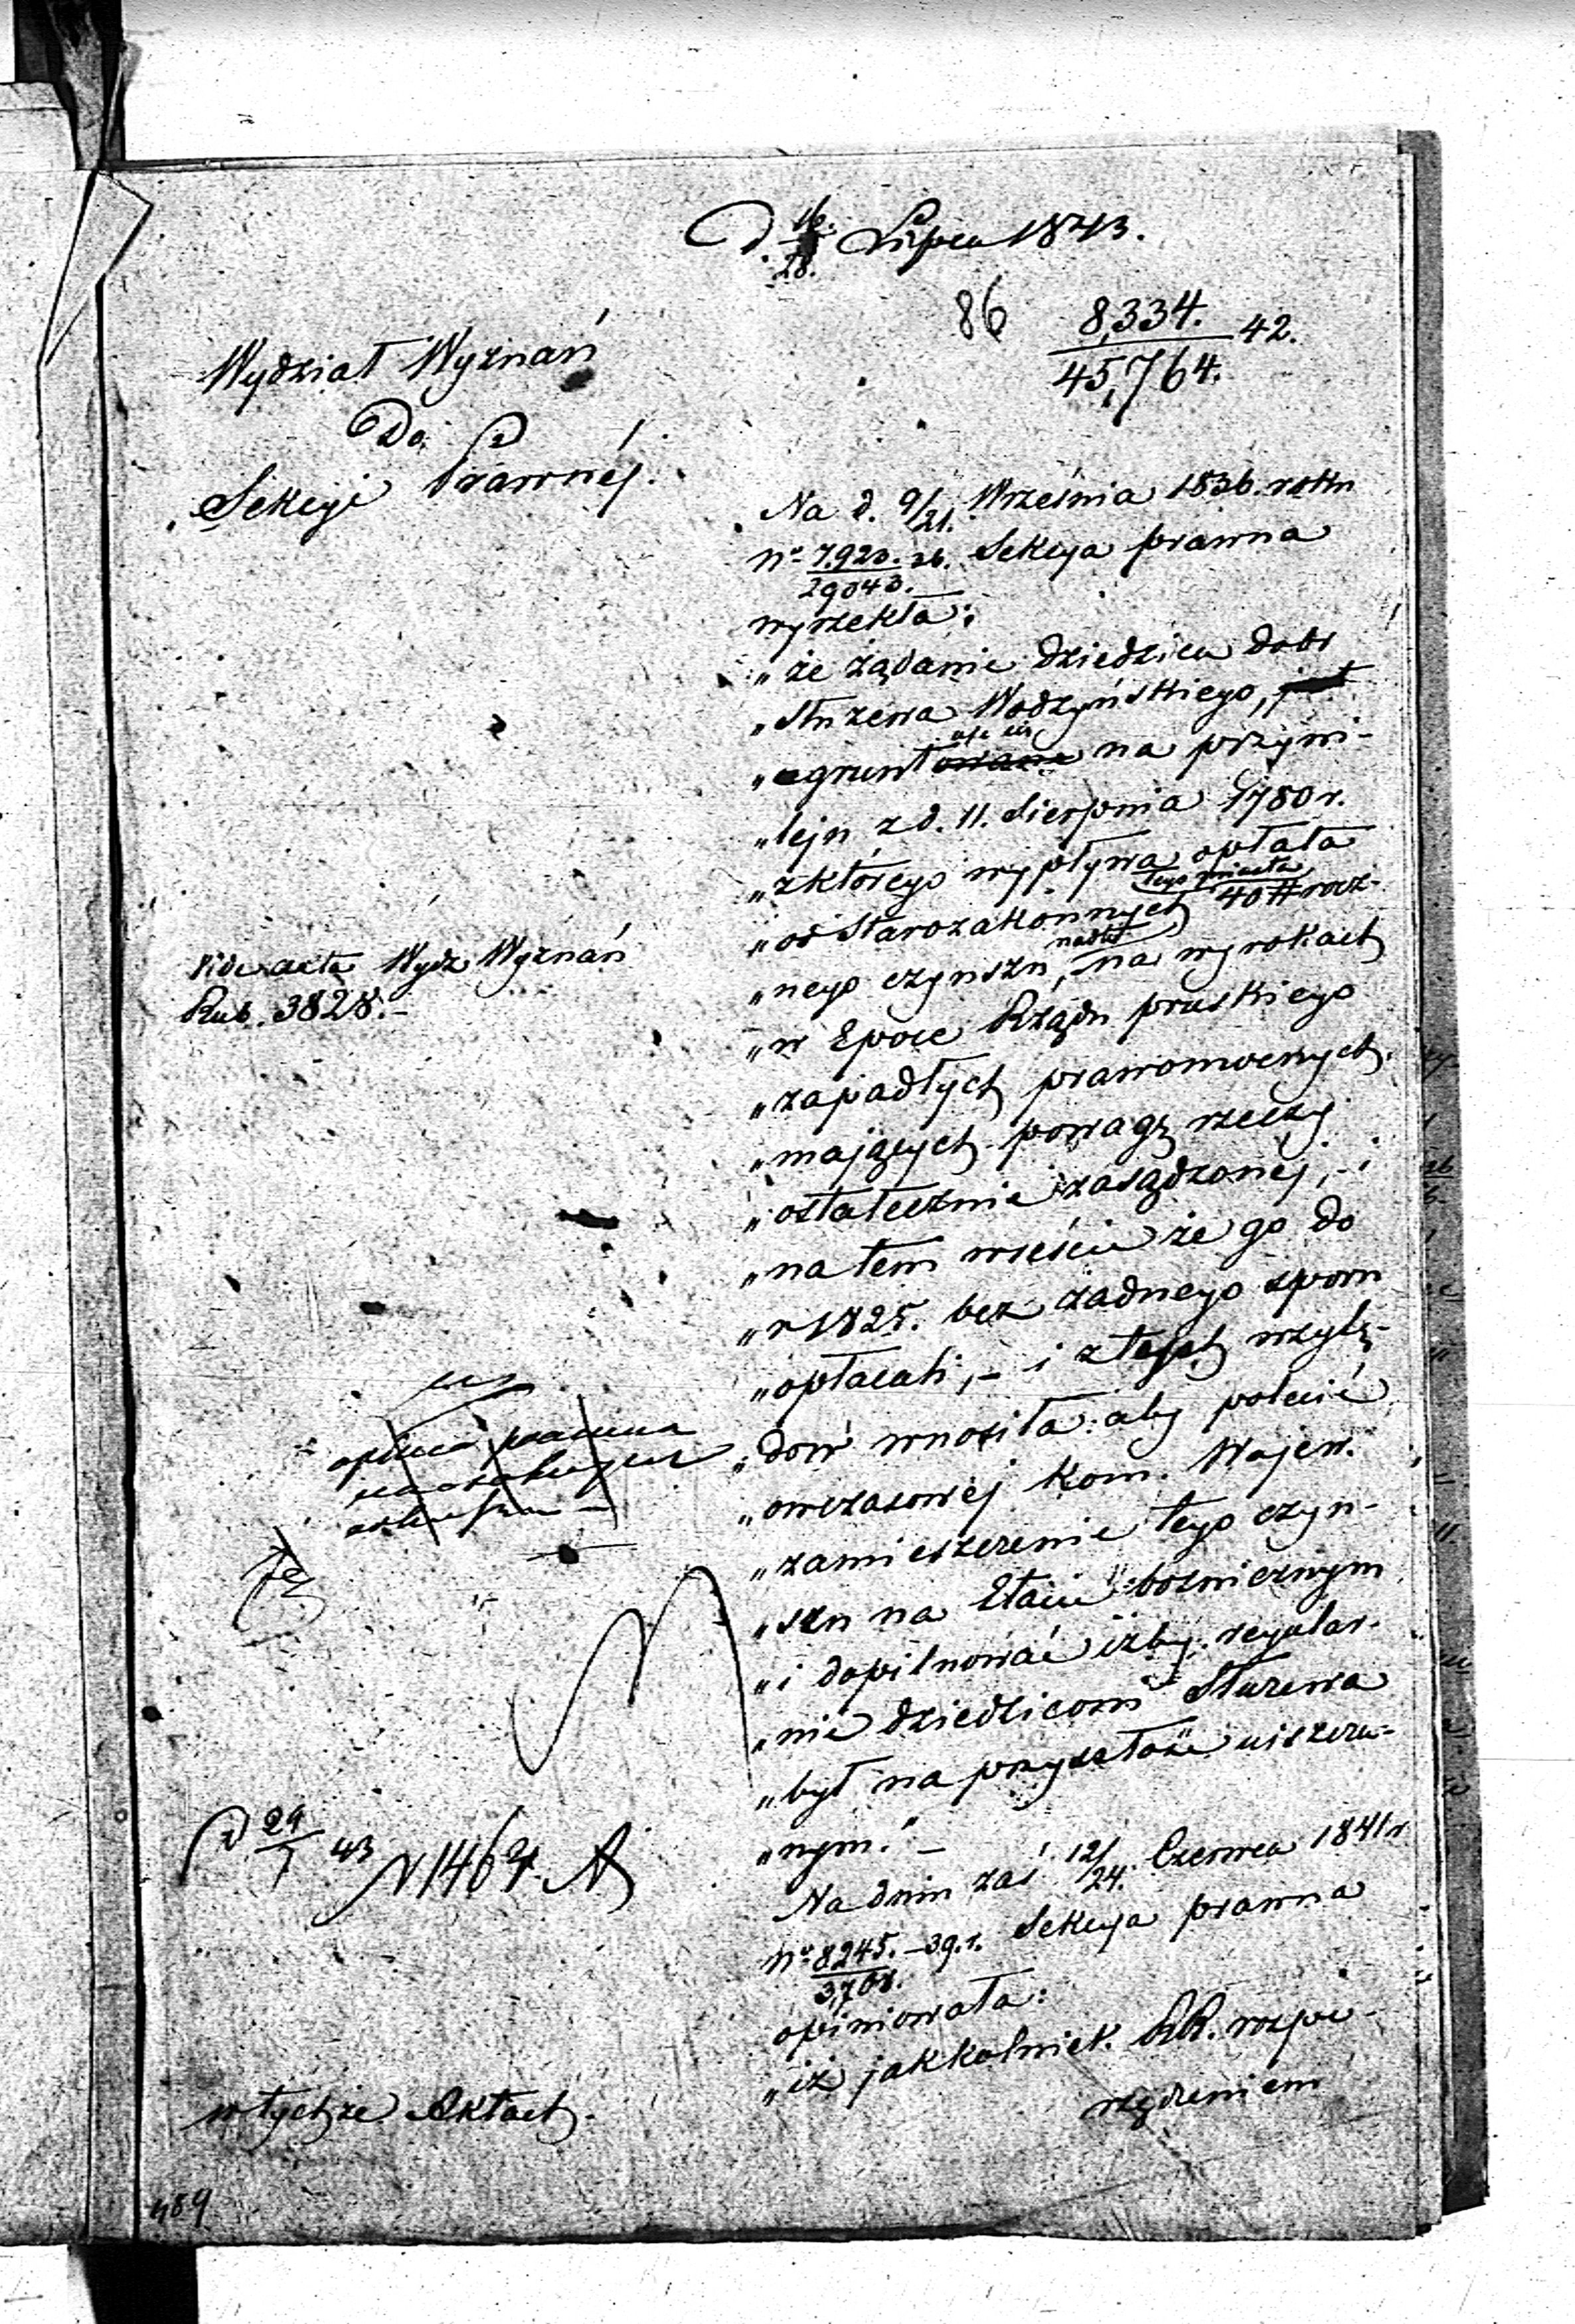 D. 16/28. Lipca 1843.
86 8,334./45,764. 42.
Wydział Wyznań
Do
Sekcyi Prawnéj.
Na d. 9/21. Września 1836. roku
No 7,920./29043. 36. Sekcya prawna
wyrzekła:
„że żądanie dziedzica dóbr
„Służewa Wodzyńskiego, jest
„ugruntowane na przywi-
„leju z d. 11. Sierpnia 1780 r.
„z którego wypływa opłata
„od Starozakonnych tego miasta 40 # rocz-
„nego czynszu, nadto na wyrokach
„w Epoce Rządu pruskiego
„zapadłych prawomocnych,
„mających powagę rzeczy
„ostatecznie zasądzonej, - i
„na tem wreście że go do
„r 1825. bez żadnego sporu
„opłacali, - i z tych wzglę-
„dów wnosiła: aby polecić
„ówczasowéj Kom. Wojew.
„zamieszczenie tego czyn-
„szu na Etacie bożnicznym
„i dopilnować iżby regular-
„nie dziedzicom Służewa
„był na przyszłość uiszczo-
„nym." -
Na dniu zaś 12/24. Czerwca 1841 r
No 8245./3,708. - 39. r. Sekcya prawna
opiniowała:
„iż jakkolwiek K. R. rozpo-
rządzeniem
Vide acta Wydz Wyznań
Rub. 3828. -
d 29/7 43
N 1464.
w tychże Aktach.
489